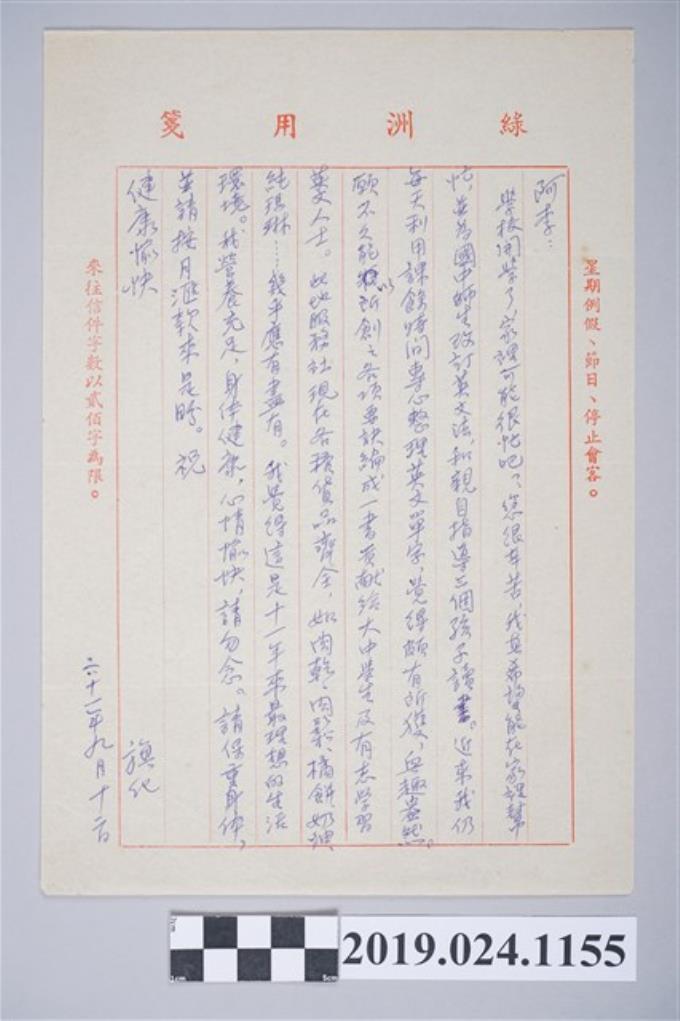 綠洲用箋
星期例假、節日、停止會客。
阿李:
學校開學了,家裡可能很忙吧?您很辛苦,我真希望能在家裡幫
忙,並為國中師生改訂英文法,和親自指導三個孩子讀書。近來我仍
每天利用課餘時間專心整理英文單字,覺得頗有所獲,興趣盎然。
願不久能以所創之各項要訣編成一書貢献給大中學生及有志學習
英文人士。此地服務社現在各種貨品齊全,如肉乾、肉鬆、橘餅奶油
純琪琳……幾乎應有盡有。我覺得這是十一年來最理想的生活
環境。我營養充足,身体健康,心情愉快,請勿念。請保重身体,
並請按月滙款來是盼。祝
健康愉快
旗化
六十一年九月十二日
來往信件字數以貳佰字為限。
1cm
5cm
2019.024.1155